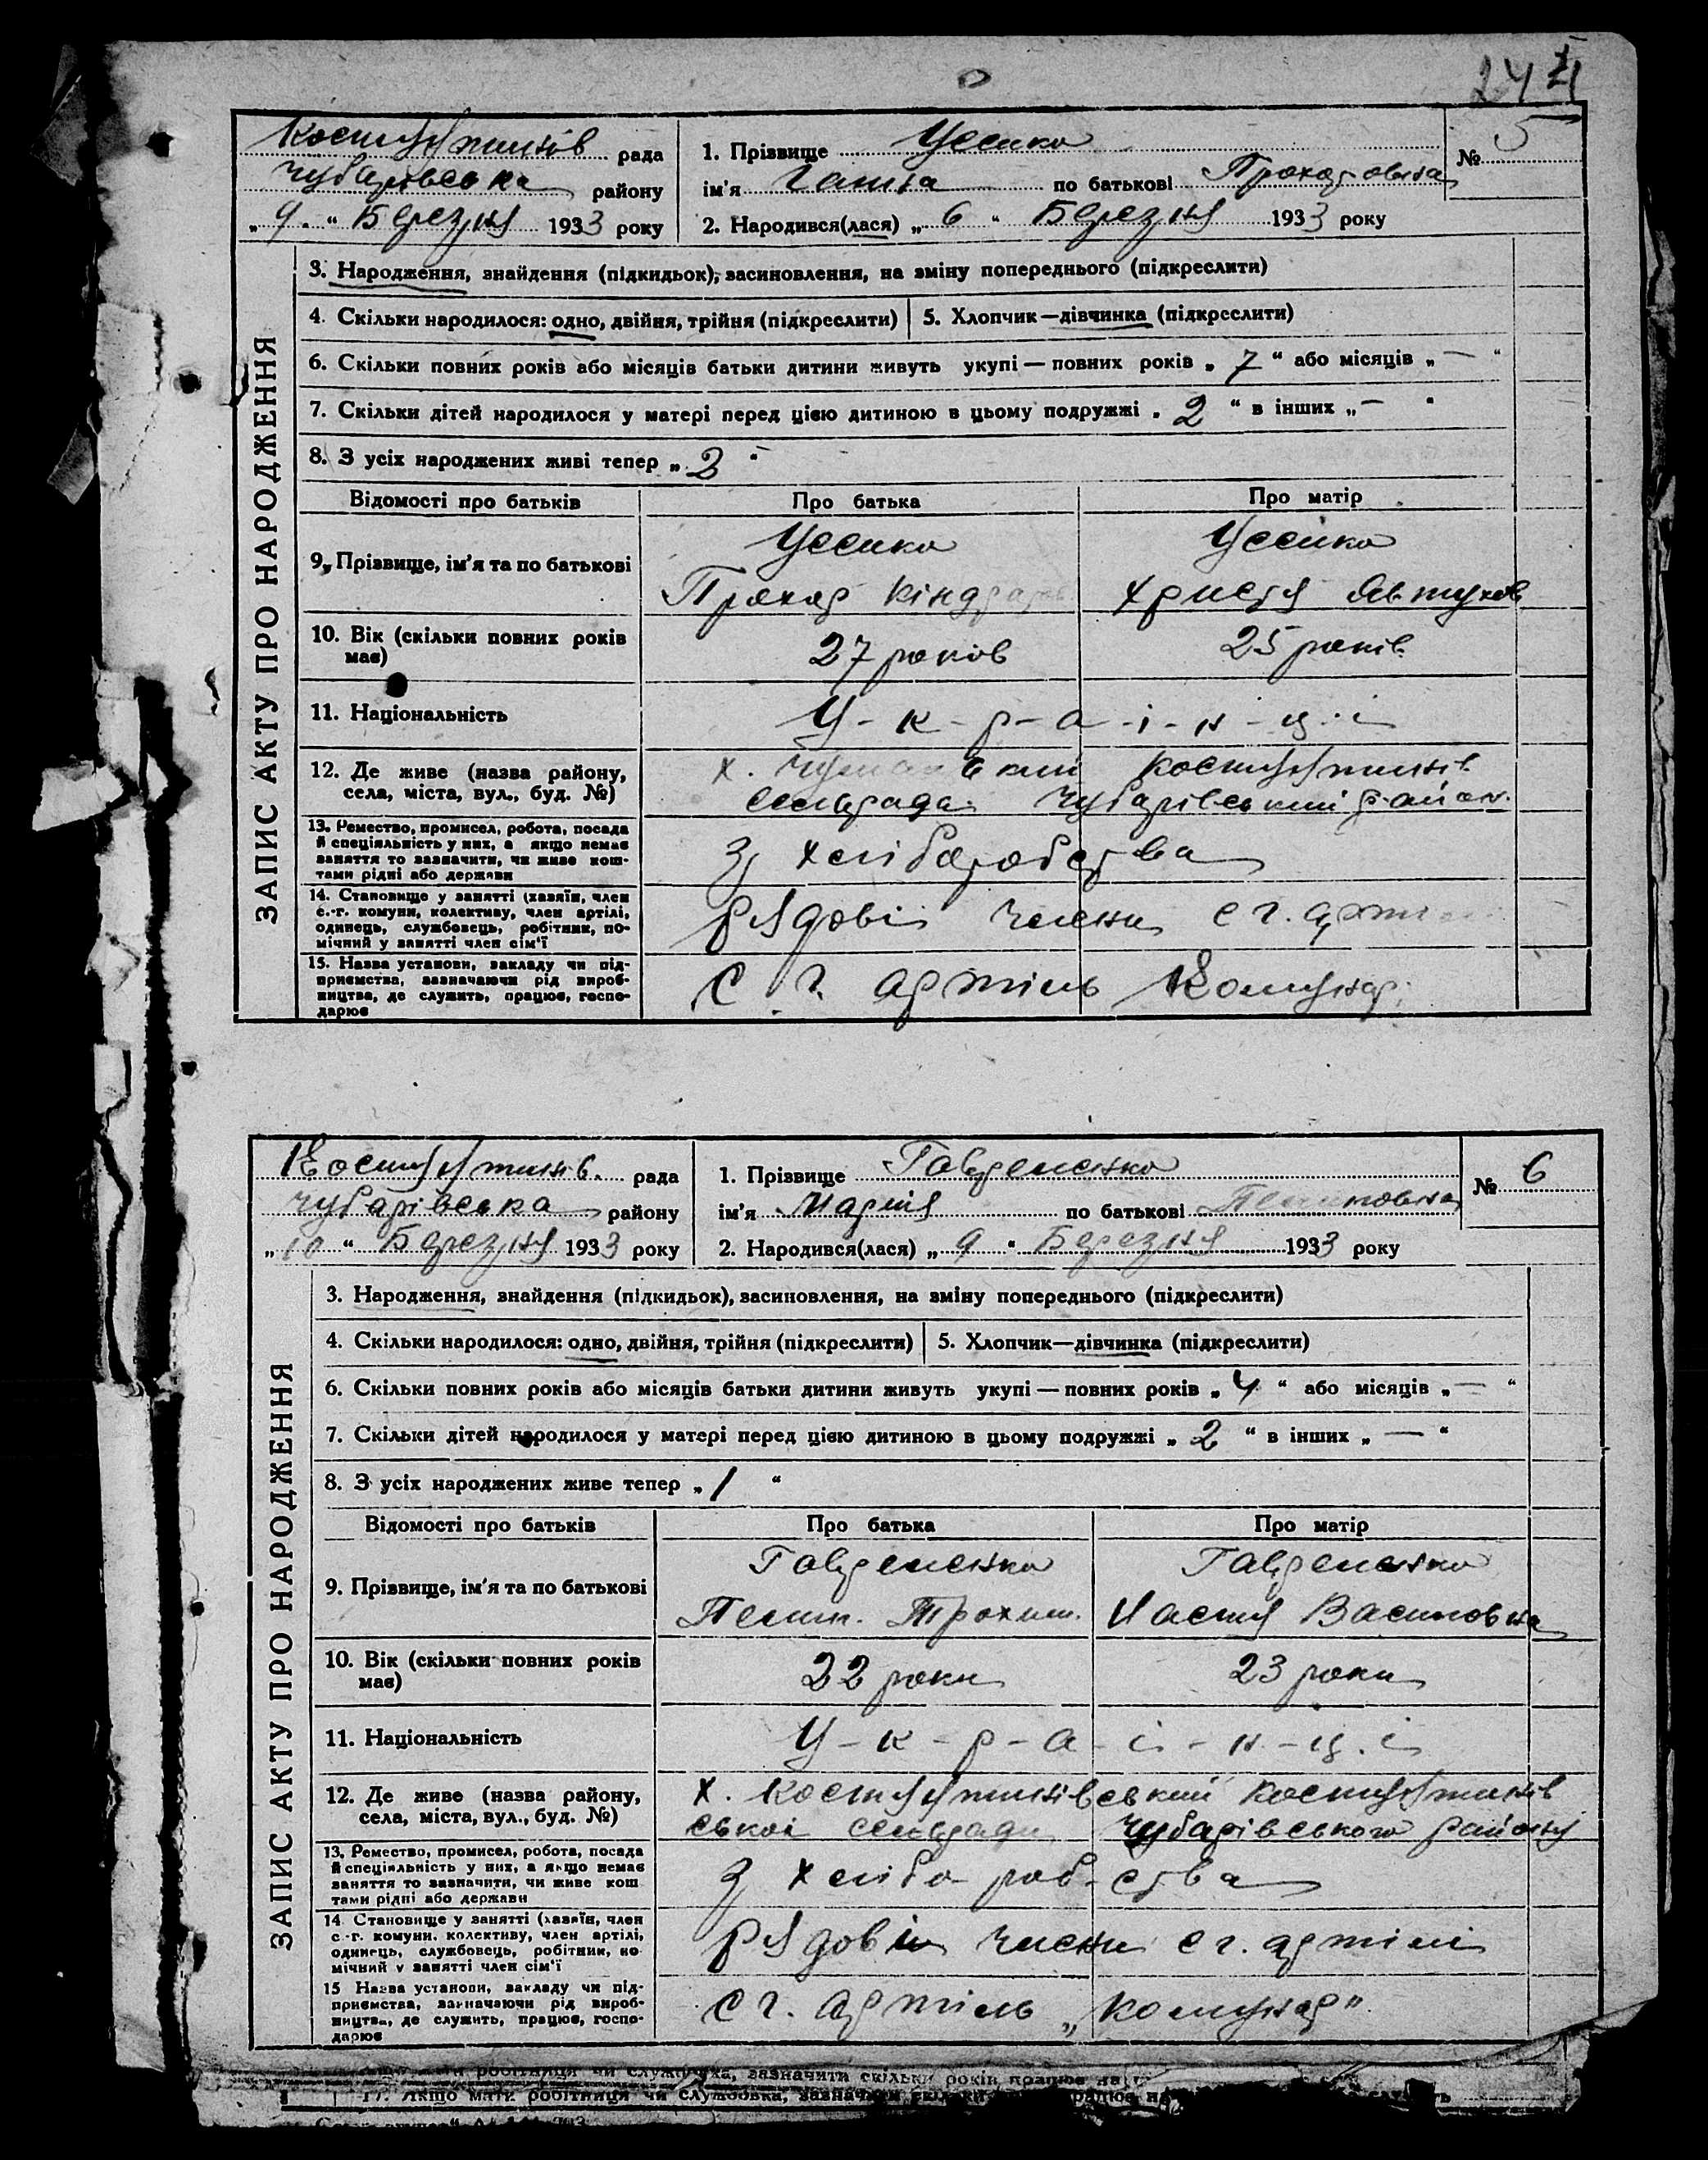 Костянтинів рада
Чубарівська району
„9.“ Березня 1933 року
1. Прізвище Усенко
№ 5
ім'я Ганна по батькові Прохоровна
2. Народився(лася) „6“ Березня 1933 року
ЗАПИС АКТУ ПРО НАРОДЖЕННЯ
3. Народження, знайдення (підкидьок), засиновлення, на зміну попереднього (підкреслити)
4. Скільки народилося: одно, двійня, трійня (підкреслити) 5. Хлопчик—дівчинка (підкреслити)
6. Скільки повних років або місяців батьки дитини живуть укупі — повних років „7“ або місяців „—“
7. Скільки дітей народилося у матері перед цією дитиною в цьому подружжі „2“ в інших „—“
8. З усіх народжених живі тепер „2“
Відомості про батьків Про батька Про матір
9. Прізвище, ім'я та по батькові
Усенко Усенко
Прохор Кіндратов Христя Автухов
10. Вік (скільки повних років
має)
27 років 25 років
11. Національність У-к-р-а-ї-н-ц-і
12. Де живе (назва району,
села, міста, вул., буд. №)
х. Костянтинів
сельрада Чубарівський район
13. Ремество, промисел, робота, посада
й спеціяльність у них, а якщо немає
заняття то зазначити, чи живе кош-
тами рідні або держави
З хліборобства
14. Становище у занятті (хазяїн, член
с.-г. комуни, колективу, член артілі,
одинець, службовець, робітник, по-
мічний у занятті член сім'ї
рядові члени с г. артілі
15. Назва установи, закладу чи під-
приємства, зазначаючи рід вироб-
ництва, де служить, працює, госпо-
дарює
С г. артіль Комунар
Костянтинів. рада
Чубарівська району
„10“ Березня 1933 року
1. Прізвище Гавриленко
№ 6
ім'я Марія по батькові
2. Народився(лася) „9“ Березня 1933 року
ЗАПИС АКТУ ПРО НАРОДЖЕННЯ
3. Народження, знайдення (підкидьок), засиновлення, на зміну попереднього (підкреслити)
4. Скільки народилося: одно, двійня, трійня (підкреслити) 5. Хлопчик—дівчинка (підкреслити)
6. Скільки повних років або місяців батьки дитини живуть укупі — повних років „4“ або місяців „—“
7. Скільки дітей народилося у матері перед цією дитиною в цьому подружжі „2“ в інших „—“
8. З усіх народжених живе тепер „1“
Відомості про батьків Про батька Про матір
9. Прізвище, ім'я та по батькові
Гавриленко Гавриленко
Трохим. Настя Василовна
10. Вік (скільки повних років
має)
22 роки 23 роки
11. Національність У-к-р-а-ї-н-ц-і
12. Де живе (назва району,
села, міста, вул., буд. №)
х. Костянтинівський Костянтинів
ської сельради Чубарівського району
13. Ремество, промисел, робота, посада
й спеціяльність у них, а якщо немає
заняття то зазначити, чи живе кош
тами рідні або держави
З хліборобства
14. Становище у занятті (хазяїн, член
с.-г. комуни, колективу, член артілі,
одинець, службовець, робітник, по-
мічний у занятті член сім'ї
рядові члени с г. артілі
15 Назва установи, закладу чи під-
приємства, зазначаючи рід вироб-
ництва, де служить, працює, госпо-
дарює
с г. артіль „Комунар“
робітниця чи службовка, зазначити скільки років працює на
17. Якщо мати робітниця чи службовка, зазначити скільки